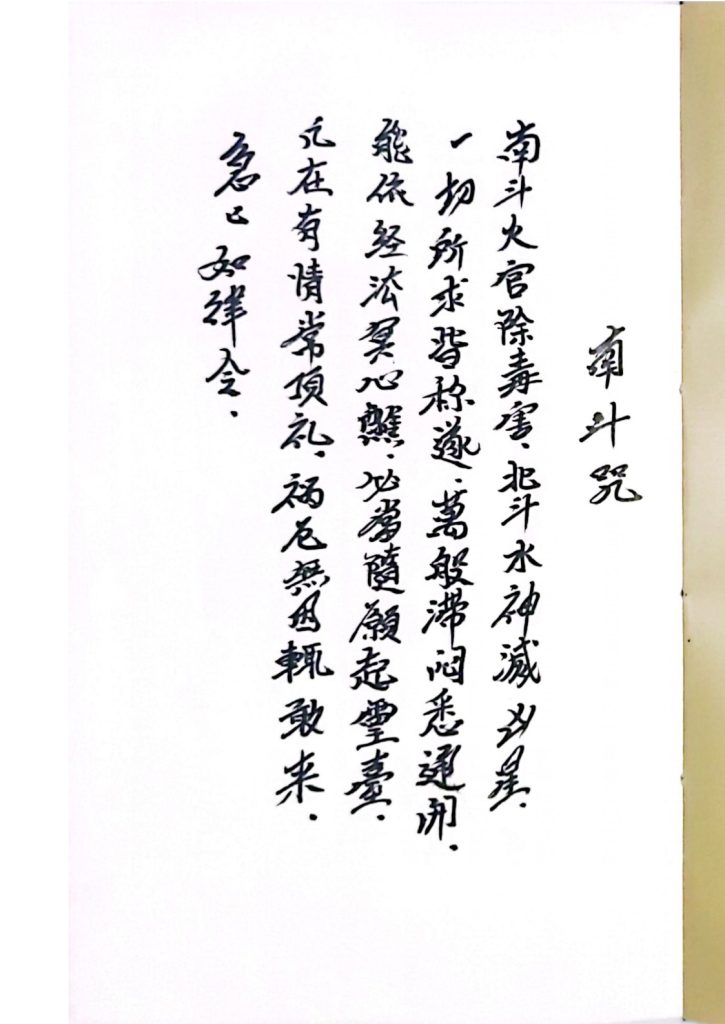 南斗咒
南斗火官除毒害、北斗水神滅凶星、
一切所求皆称遂、萬般滞闷悉通開、
能依经法冥心醮、必當随願起靈臺、
凡在有情常顶礼、祸厄無因輒敢来、
急〻如律令、